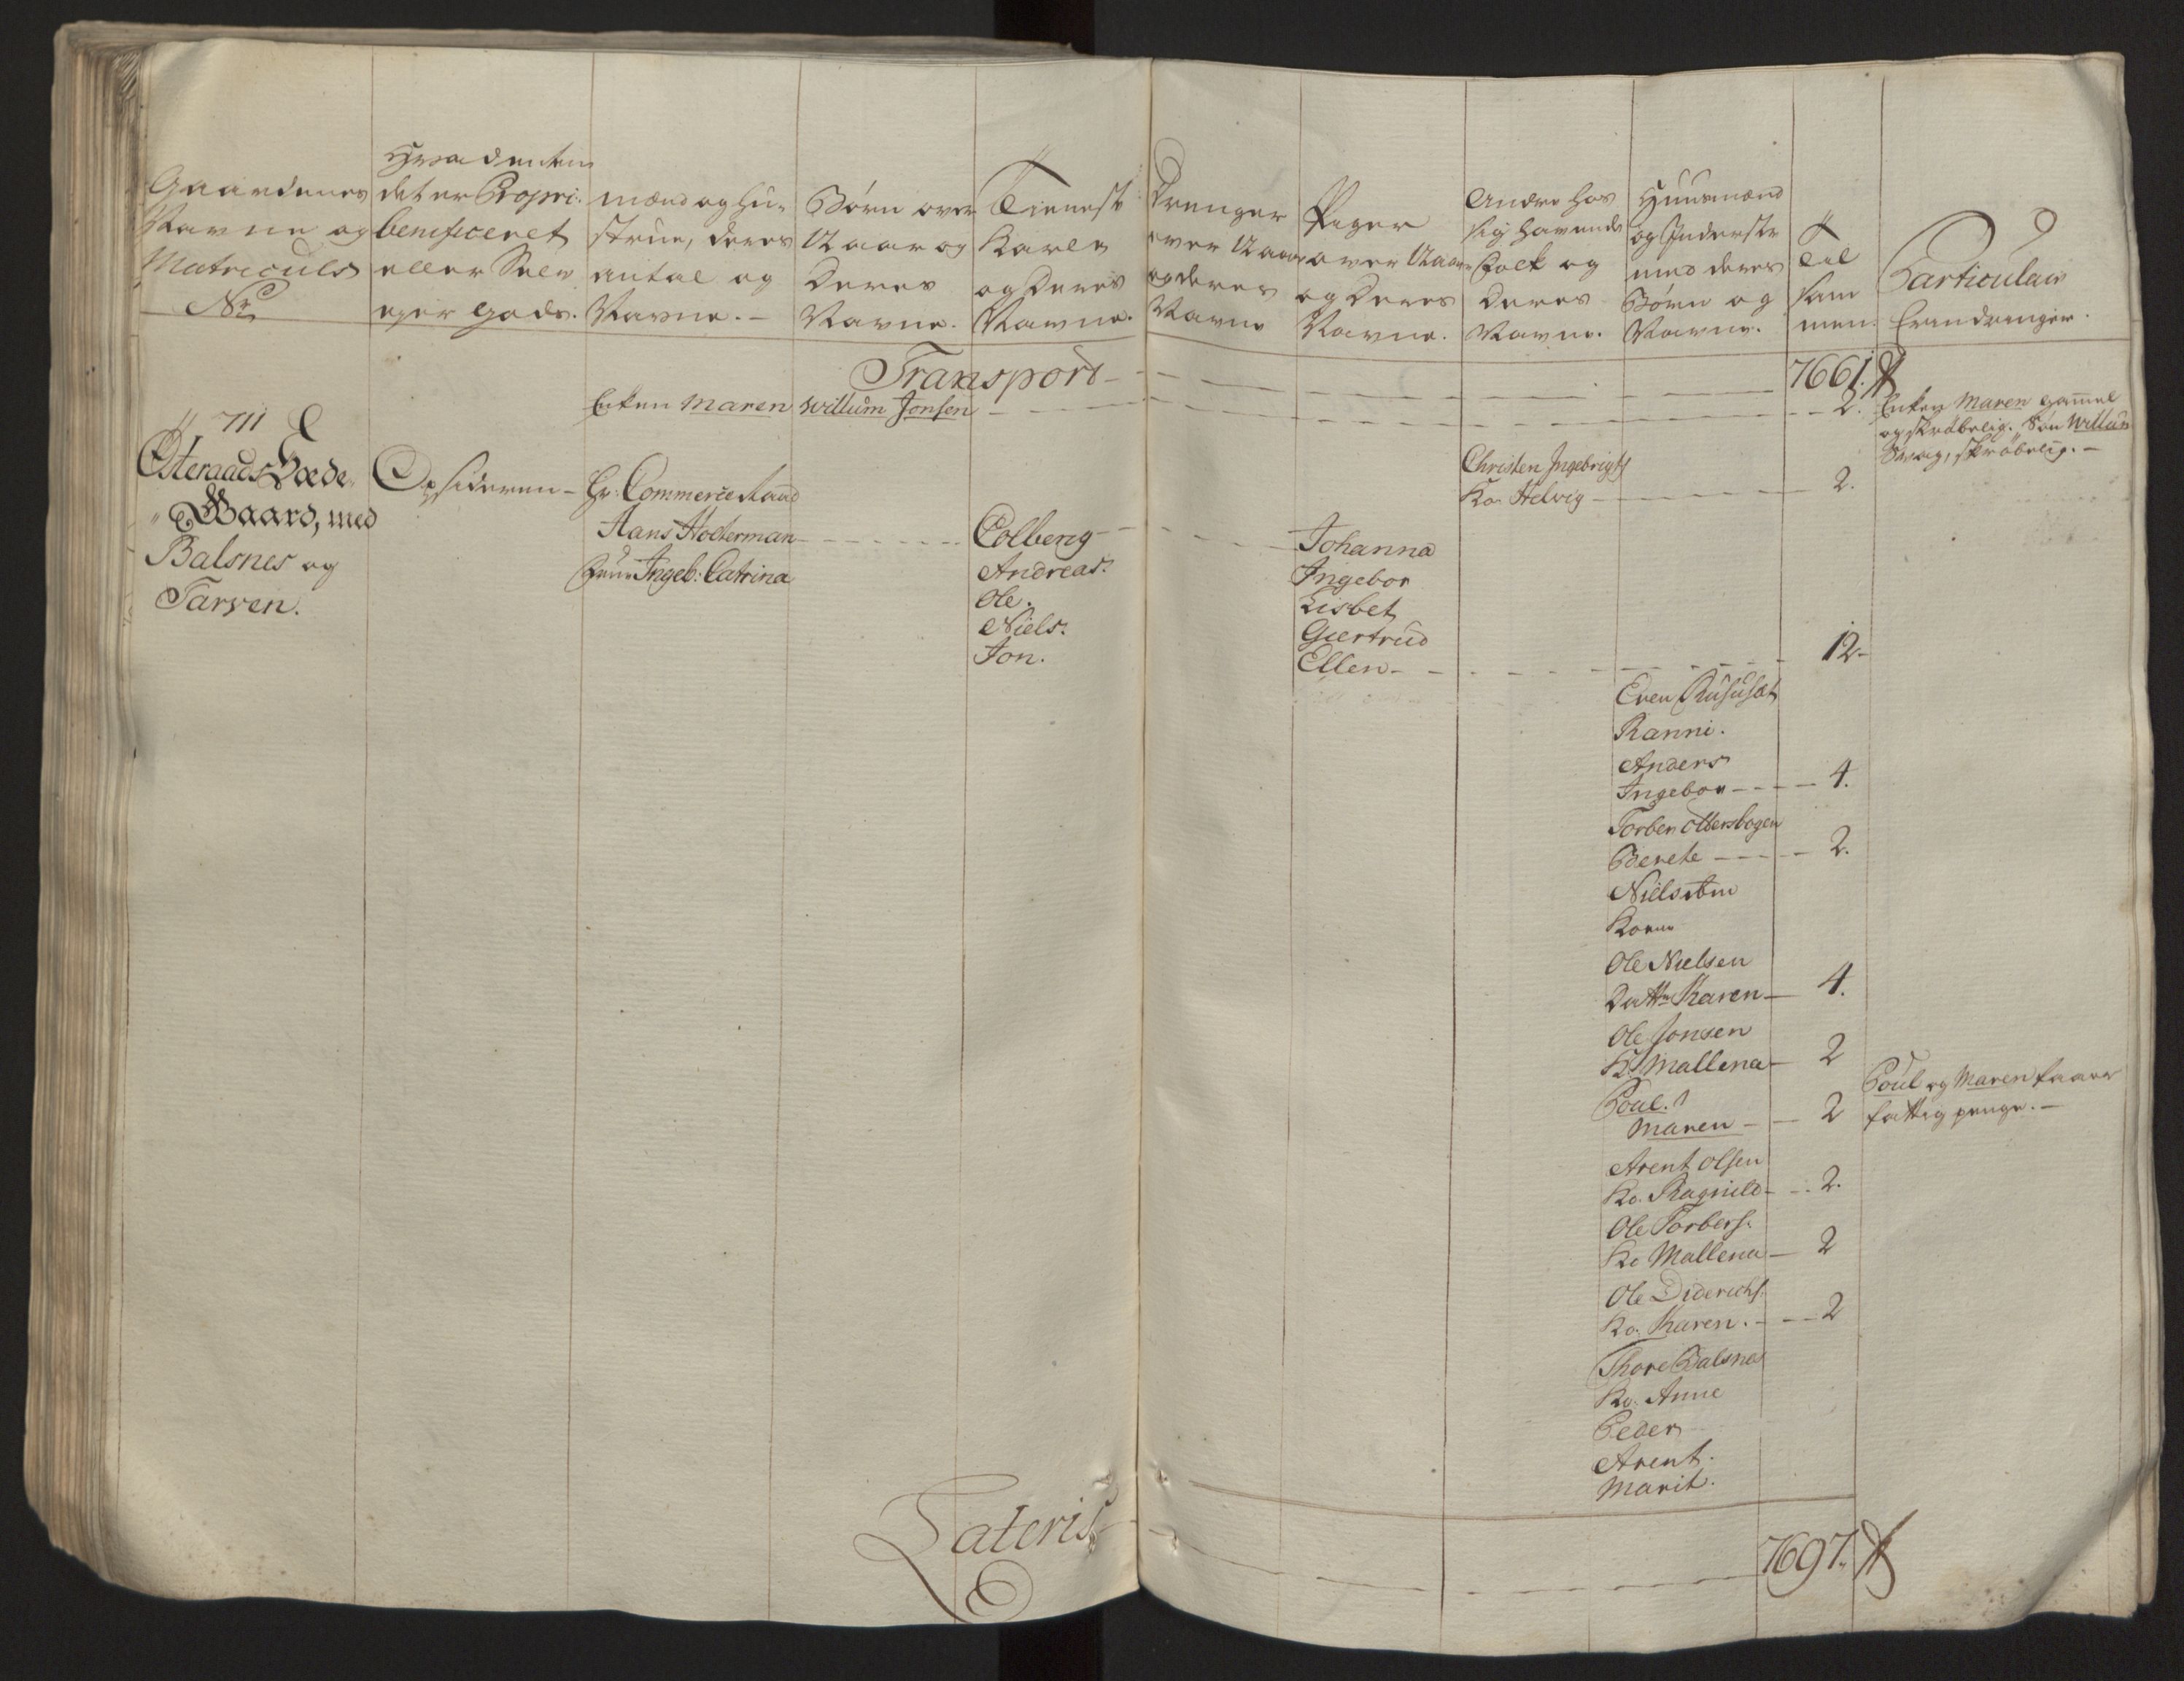 Gaardenes
Navne og
Matriculs
No
Hvadenten
det er Propri:
benificeret
eller Selv
ejer Gods.
mænd og Hu-
struer, deres
antal og
Navne. -
Børn over
12 Aar og
Deres
Navne.
Tieneste
Karle
og Deres
Navne.
Drenger
over 12 Aar
og deres
Navne
Piger
over 12 Aar
og Deres
Navne.
Andre hos
sig havende
Folk og
Deres
Navne.
Huusmænd
og Inderster
med deres
Børn og
Navne.
Til
sam
men.
Particulair
Erindringer.
Transport - 7661.
Enken Maren Willum Jonsen - 2. Enken Maren gammel
og skrøbelig. Søn Willum
Svag, skrøbelig. -
711
Østeraads Sæde-
Gaard, med
Balsnes og
Tarven.
Opsideren -
Hr: Commerce Raad
Hans Holterman -
Frue Ingeb: Catrina
Colberg -
Andreas.
Ole.
Niels.
Jon.
Johanna
Ingebor
Lisbet
Giertrud
Ellen - 12 -
Christen Ingebrigts
Ko. Helvig - 2.
Even Rususæt
Ranni.
Anders
Ingebor - 4.
Torben Ottersbogen
Berete - 2.
Niels
Kone
Ole Nielsen
Datter Karen - 4.
Ole Jonsen
K. Mallena - 2
Poul.
Maren - 2 Poul og Maren faaer
fattig penge. -
Arent Olsen
Ko. Ragnild - 2.
Ole Torbers:
Ko Mallena - 2
Ole Diderichs.
Ko. Karen. - 2
Thore Balsnes
Ko. Anne
Peder
Arent.
Marit.
Lateris - 7697.